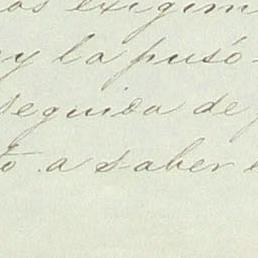 os exigim
y la pusó
seguida de
to a saber